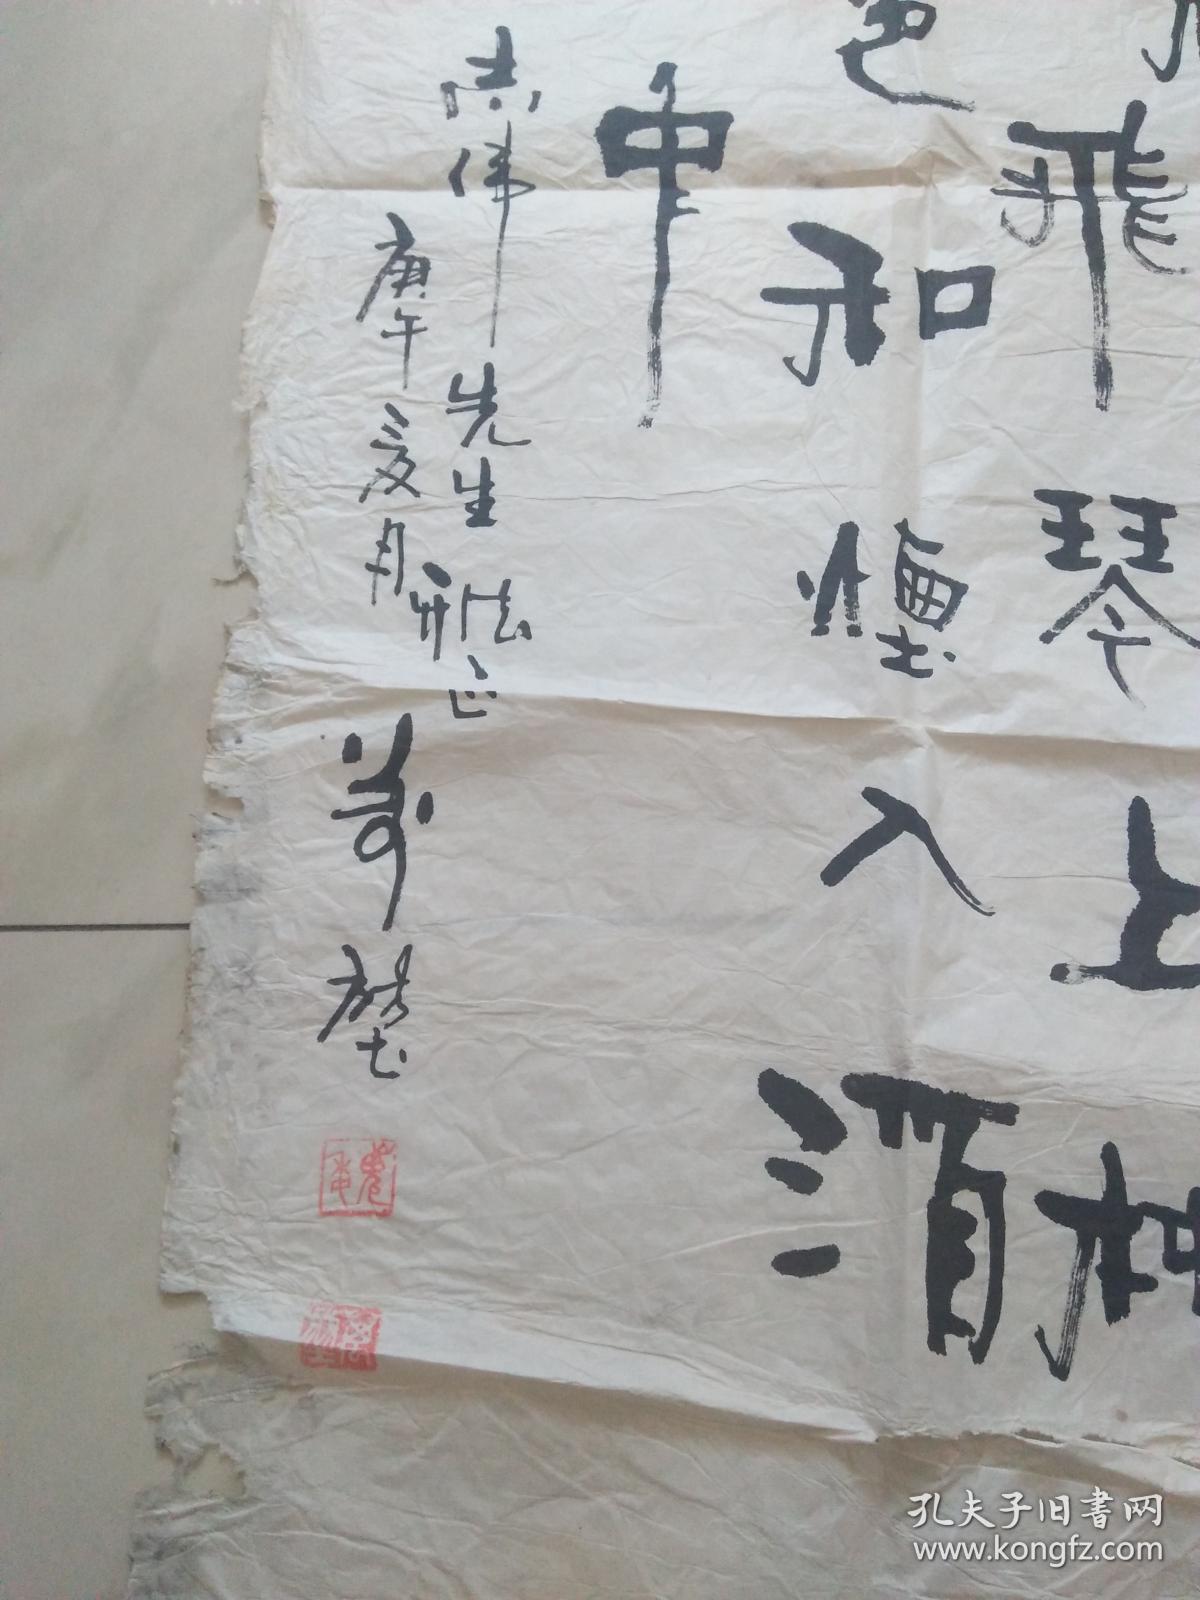 飛琴上林
色和煙入酒
中
志偉先生雅法正
庚午夏月
孔夫子旧书网
www.kongfz.com